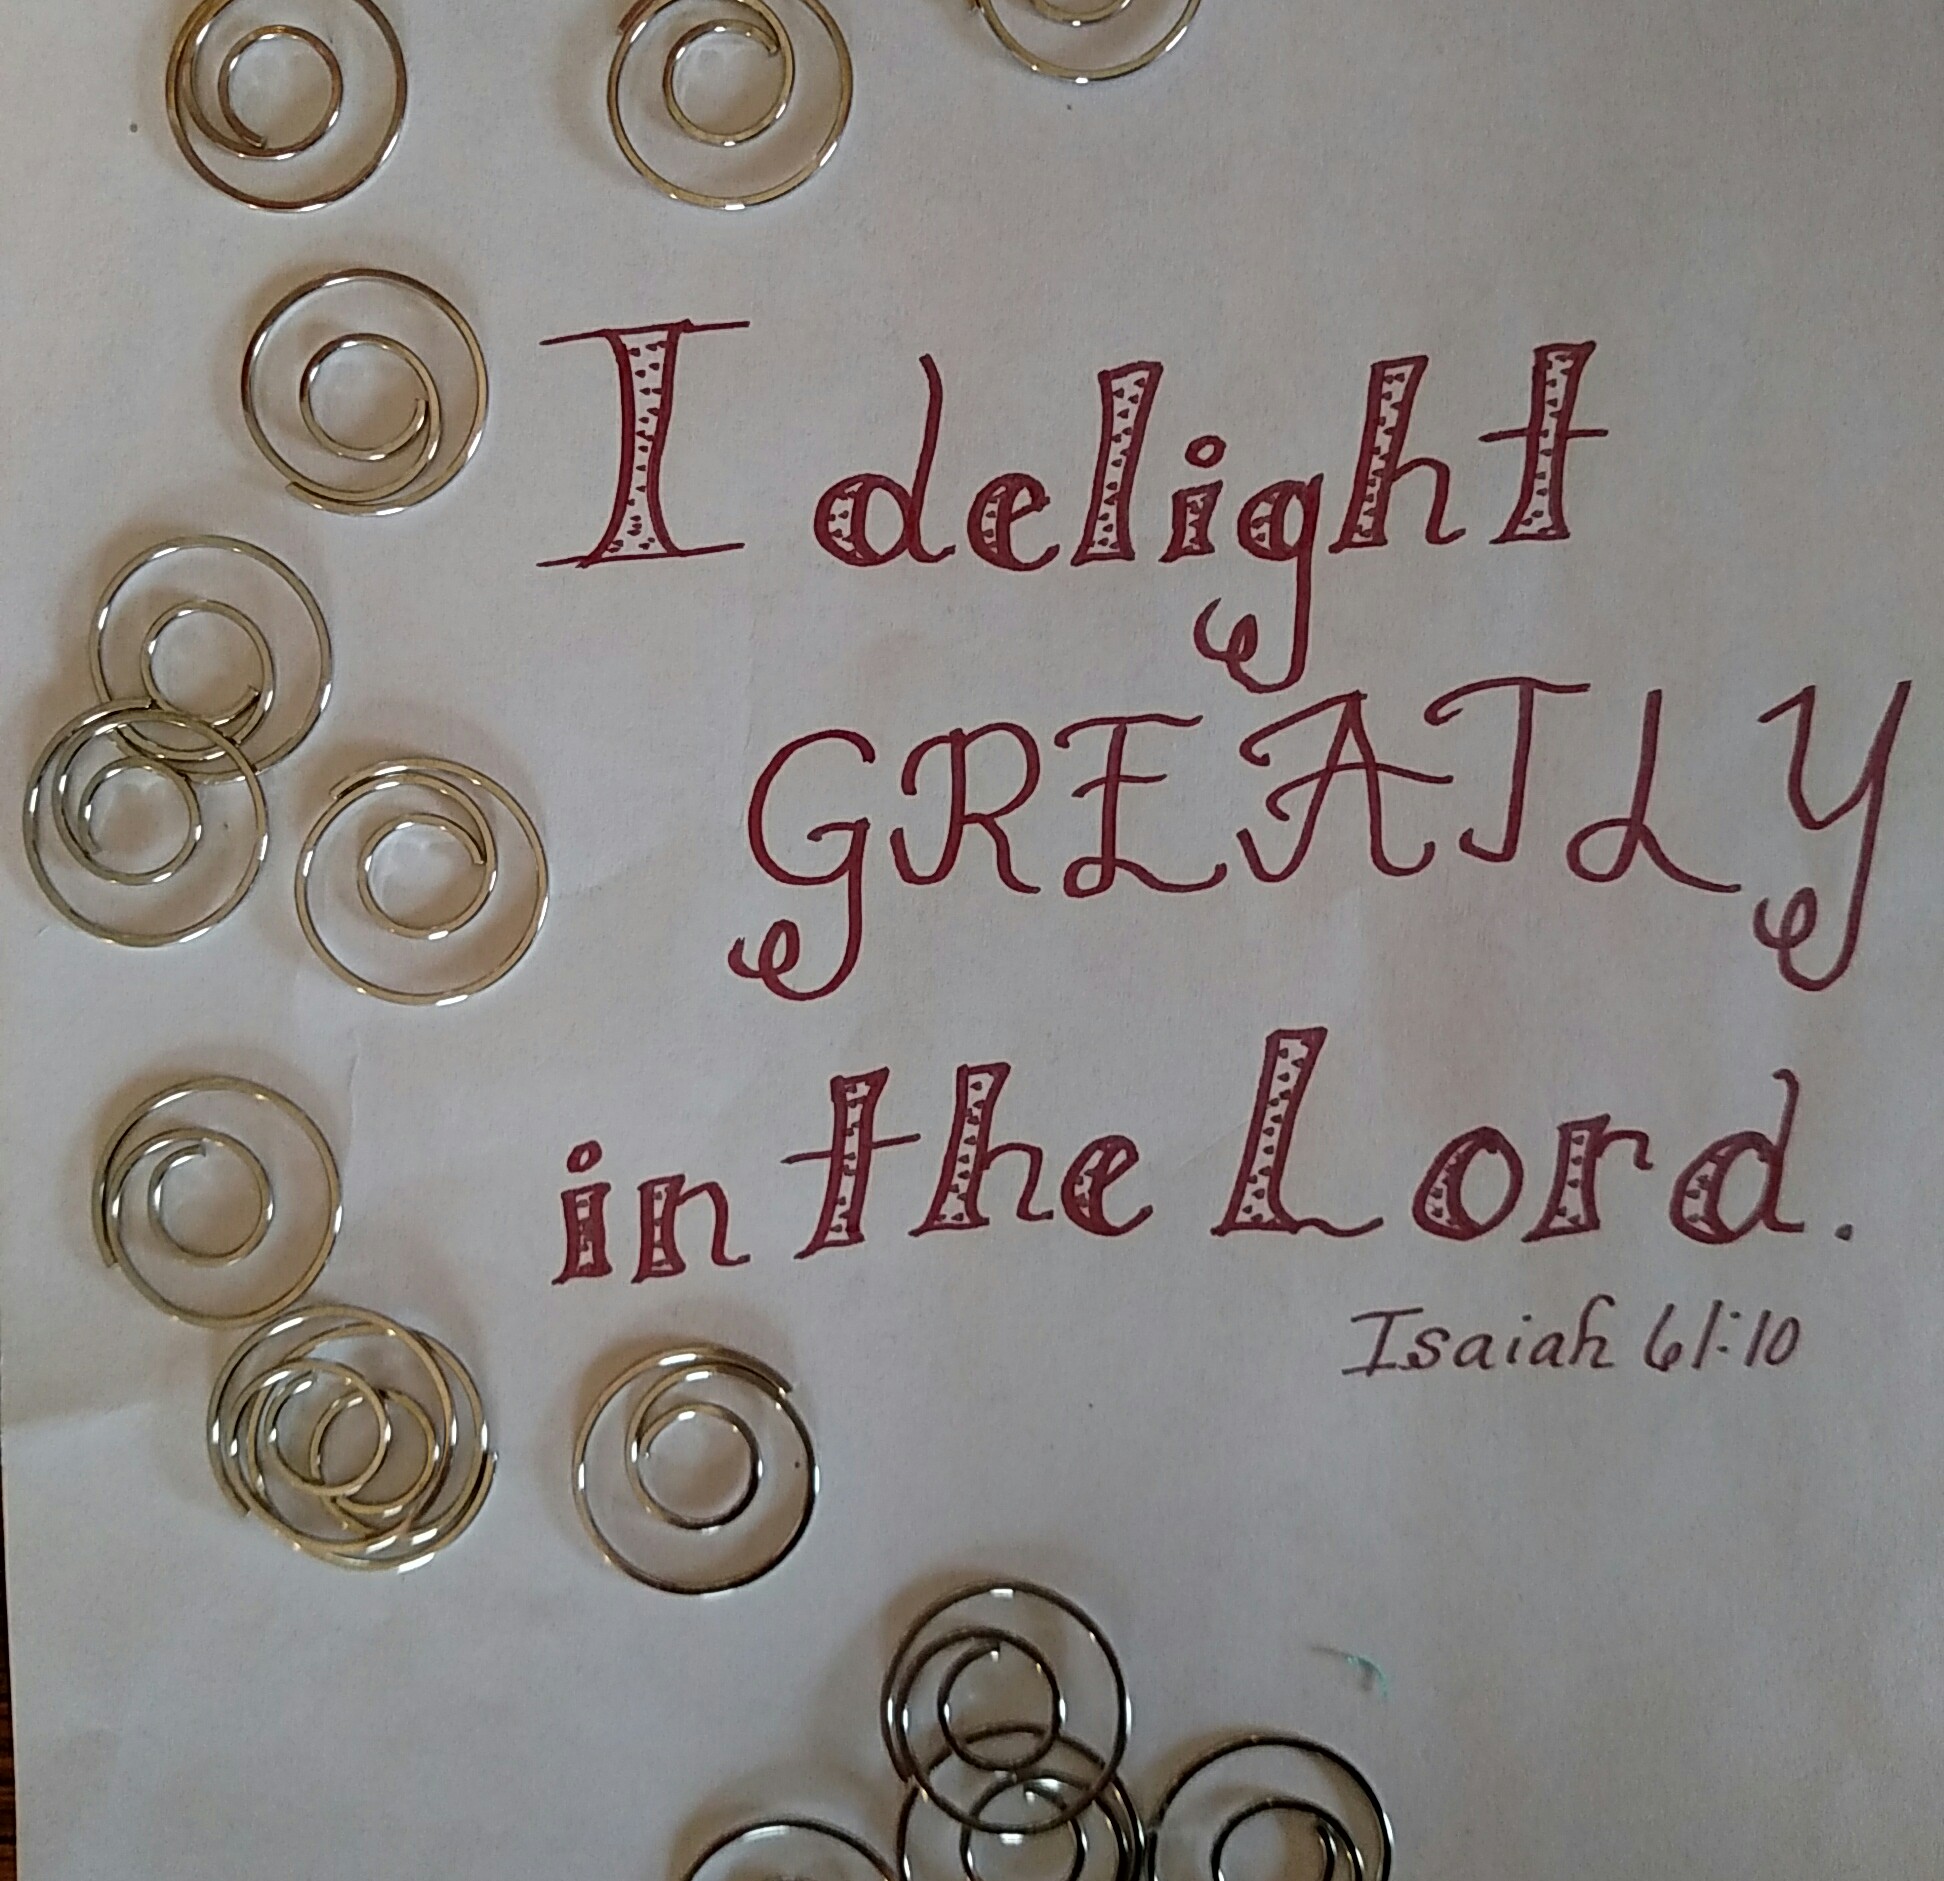 I delight
GREATLY
in the Lord.
Isaiah 61:10